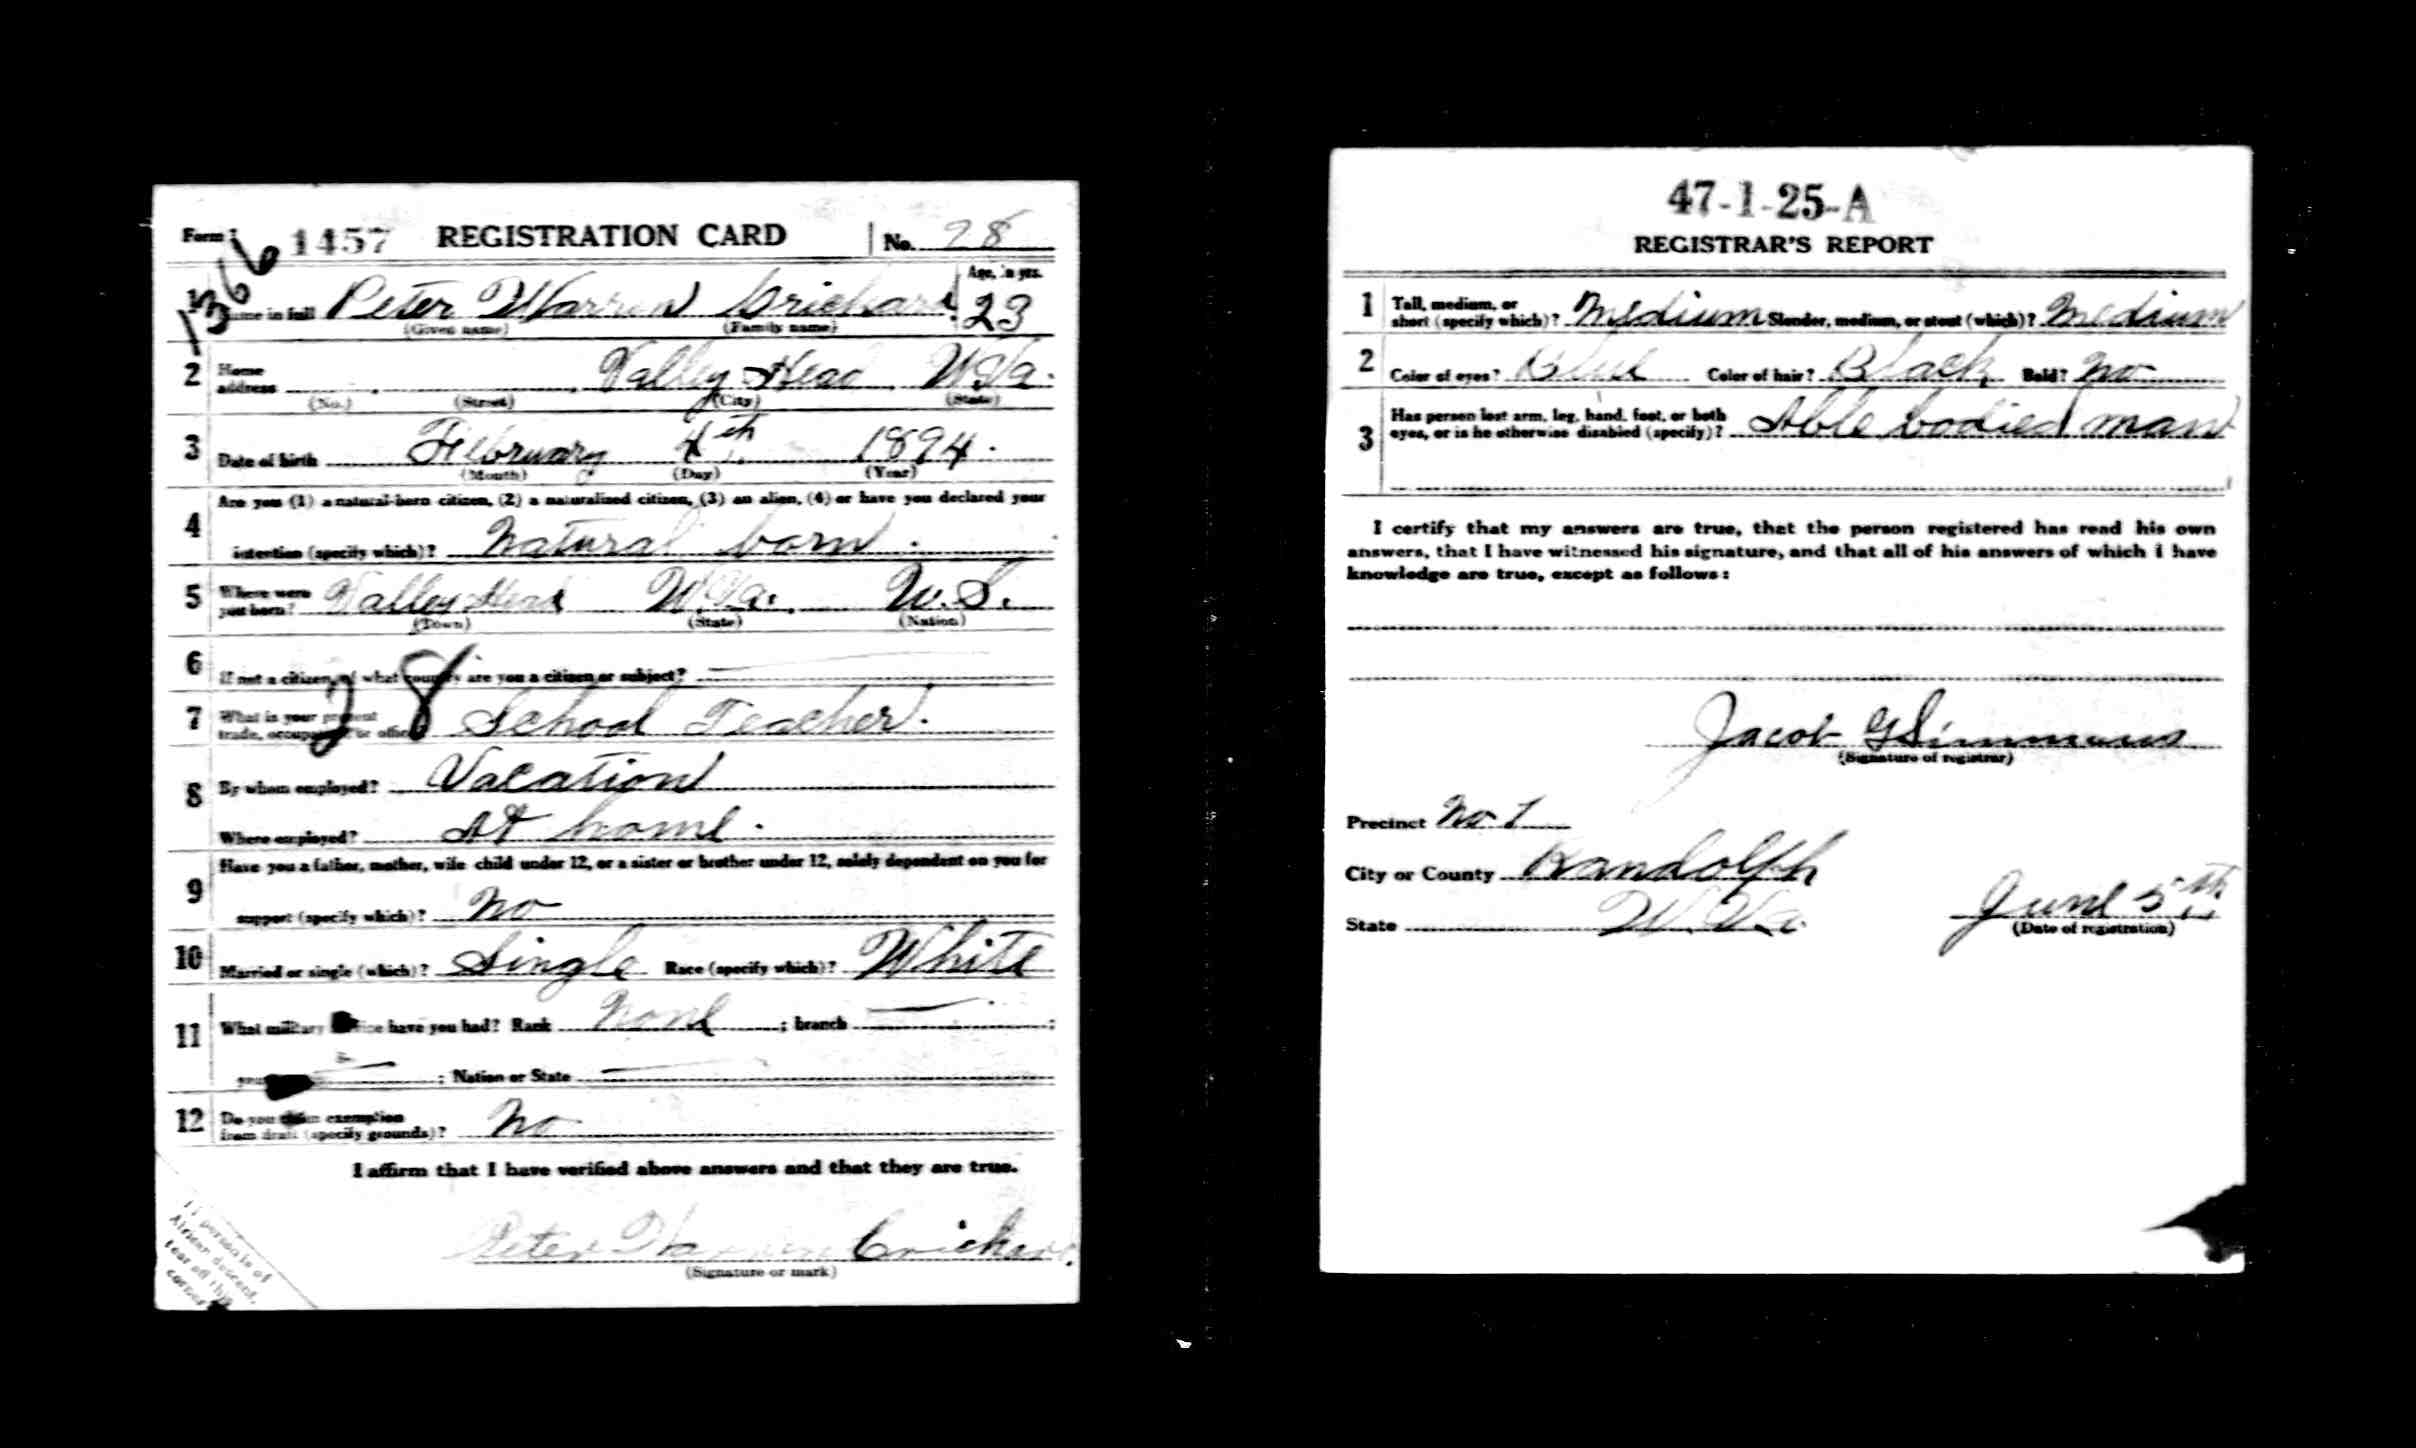 Form 1 1457 REGISTRATION CARD No. 28
1366
1 Name in full Peter Warren Crickard Age, in yrs. 23
(Given name) (Family name)
2 Home address Valley Head W.Va.
(No.) (Street) (City) (State)
3 Date of birth February 4th 1894.
(Month) (Day) (Year)
4 Are you (1) a natural-born citizen, (2) a naturalized citizen, (3) an alien, (4) or have you declared your
intention (specify which)? Natural born.
5 Where were you born? Valley Head W.Va. U.S.
(Town) (State) (Nation)
6 If not a citizen, of what country are you a citizen or subject?
28
7 What is your present trade, occupation, or office? School Teacher.
8 By whom employed? Vacation
Where employed? At home.
9 Have you a father, mother, wife child under 12, or a sister or brother under 12, solely dependent on you for
support (specify which)? No
10 Married or single (which)? Single Race (specify which)? White
11 What military service have you had? Rank None ; branch ;
years ; Nation or State
12 Do you claim exemption from draft (specify grounds)? No
I affirm that I have verified above answers and that they are true.
Peter Warren Crickard.
(Signature or mark)
If person is of
African descent,
tear off this
corner
47-1-25-A
REGISTRAR'S REPORT
1 Tall, medium, or short (specify which)? Medium Slender, medium, or stout (which)? Medium
2 Color of eyes? Blue Color of hair? Black Bald? No
3 Has person lost arm, leg, hand, foot, or both eyes, or is he otherwise disabled (specify)? Able bodied man
I certify that my answers are true, that the person registered has read his own
answers, that I have witnessed his signature, and that all of his answers of which I have
knowledge are true, except as follows:
Jacob G Simmons
(Signature of registrar)
Precinct No 1
City or County Randolph
State W.Va. June 5th
(Date of registration)